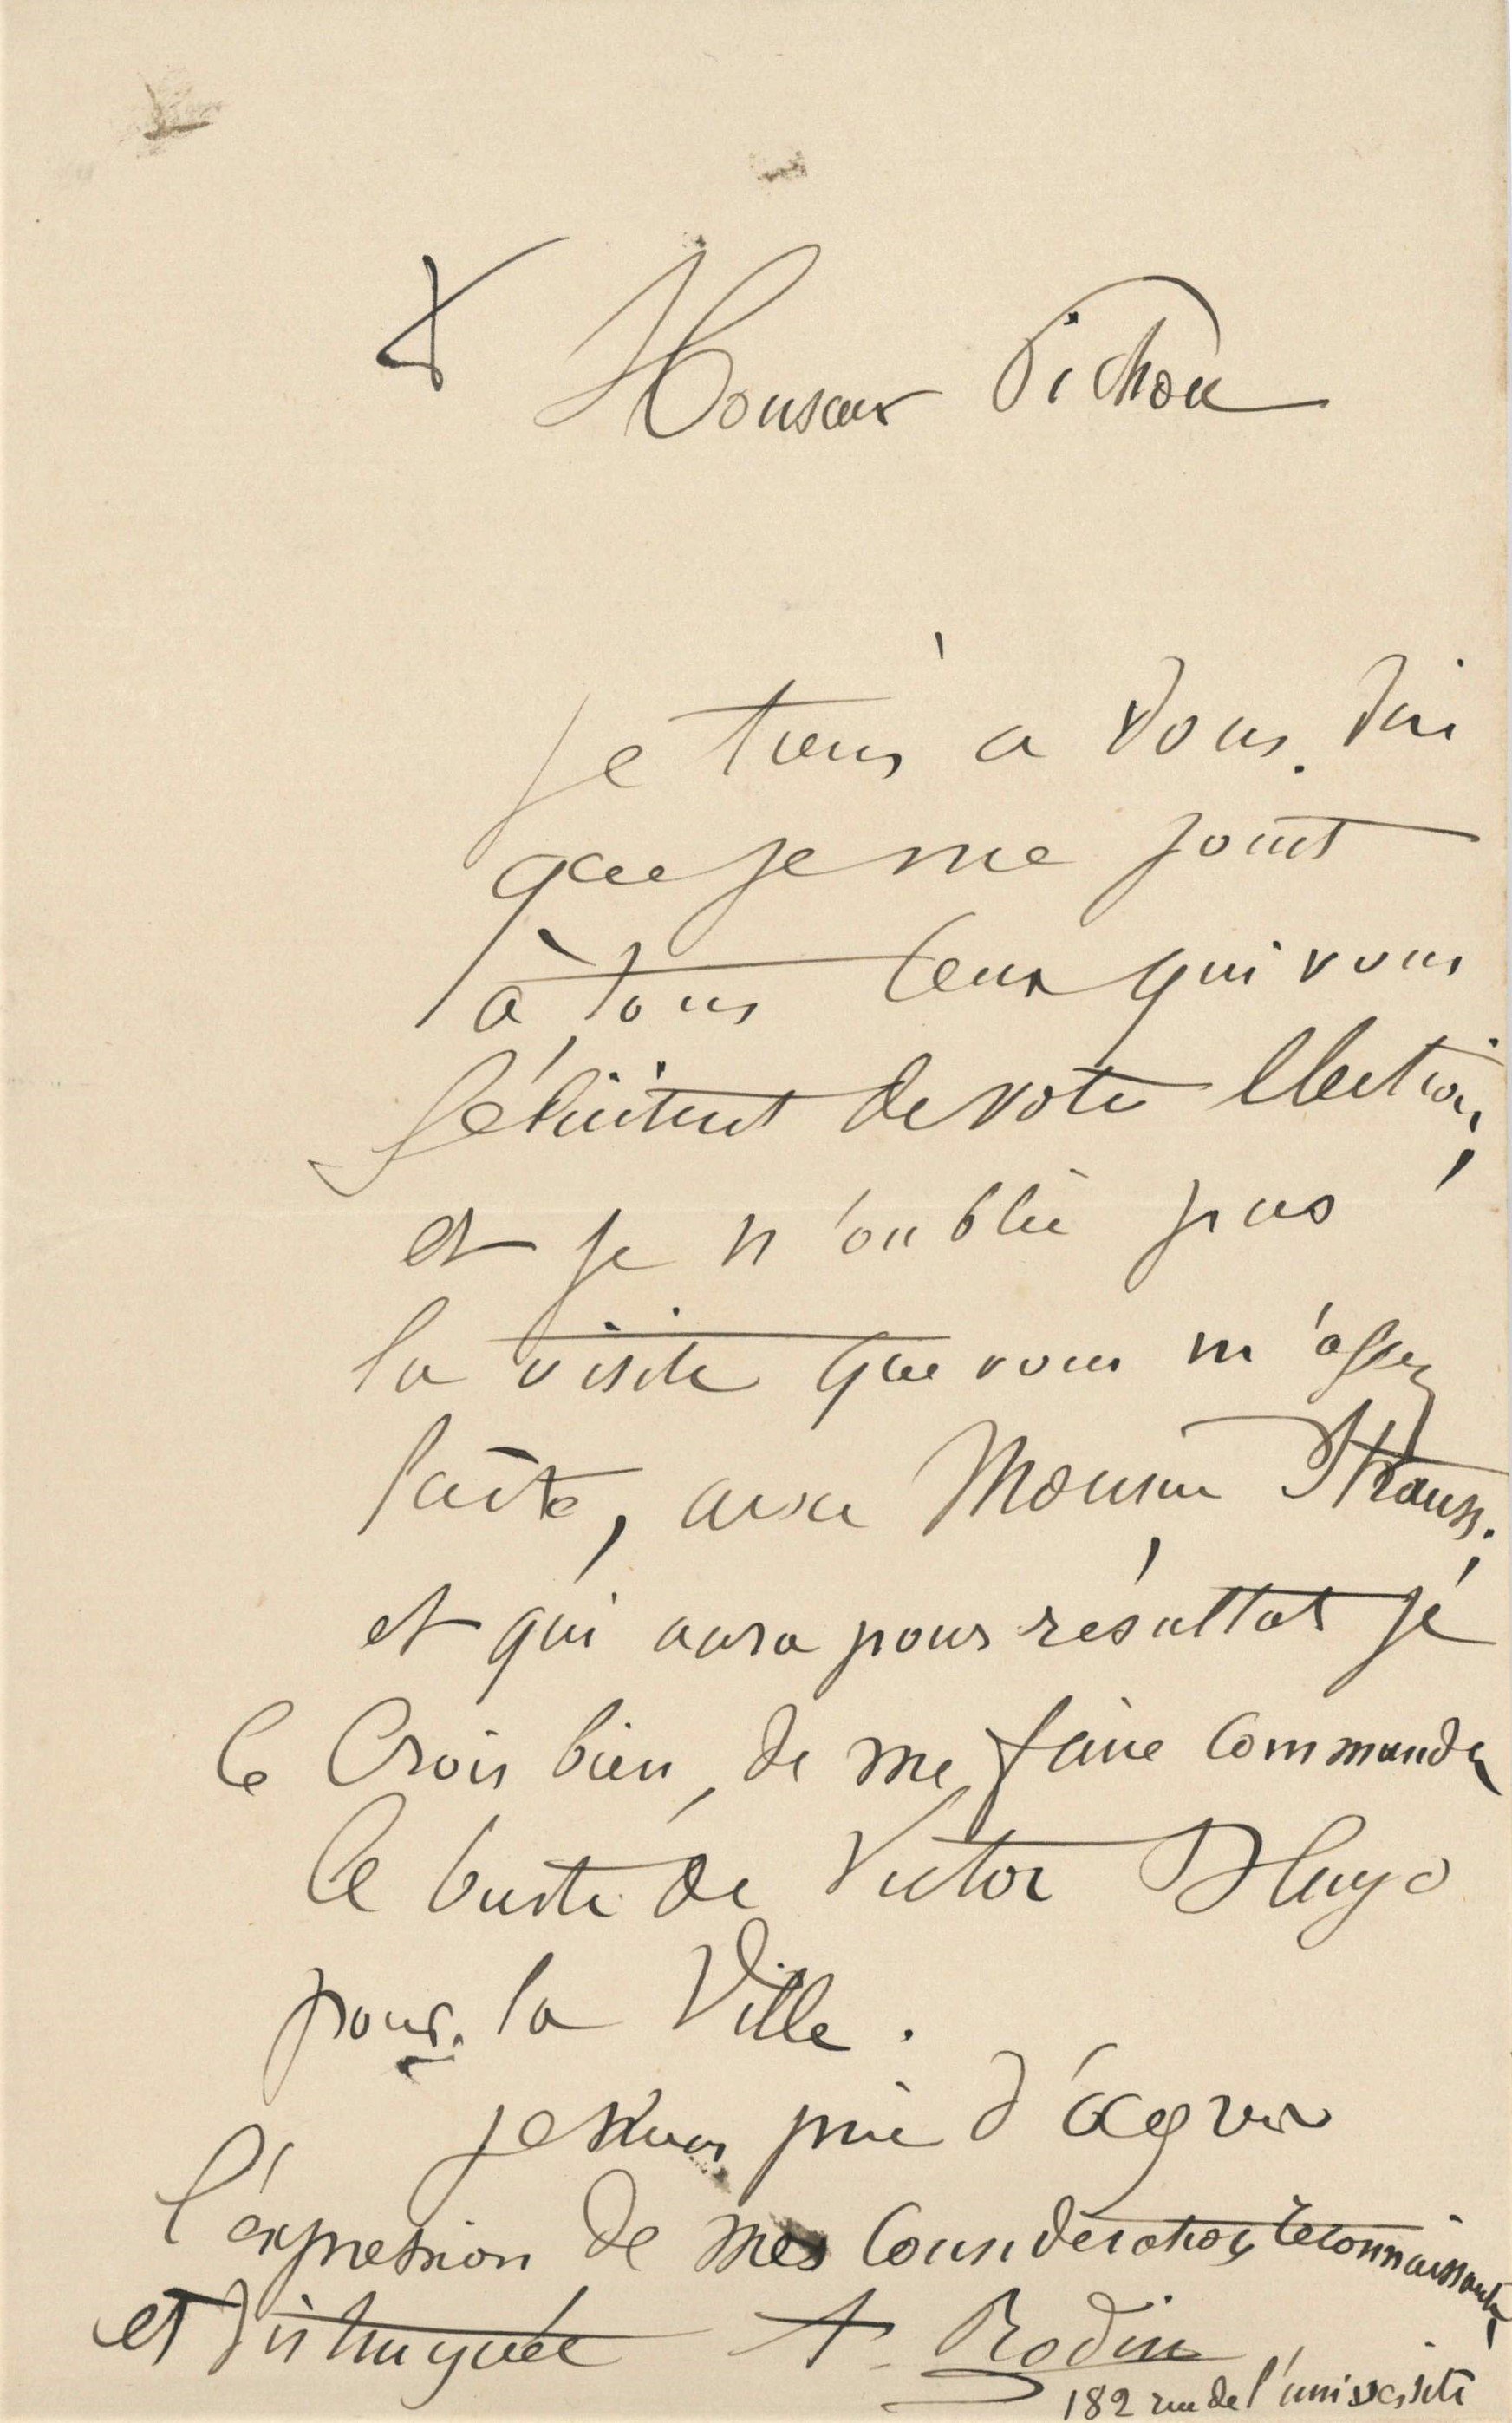 Monsieur Pichon
je tiens à vous dire
que je me joint
à tous ceux qui vous
félicitent de votre élection,
et je n'oublie pas
la visite que vous m'
faite, avec Monsieur Strauss.
et qui aura pour résultat je
le crois bien, de me faire commander
le buste de Victor Hugo
pour la Ville.
je vous prie d'
l'expression de mes considérations reconnaissante
et distinguée A. Rodin
182 rue de l'université